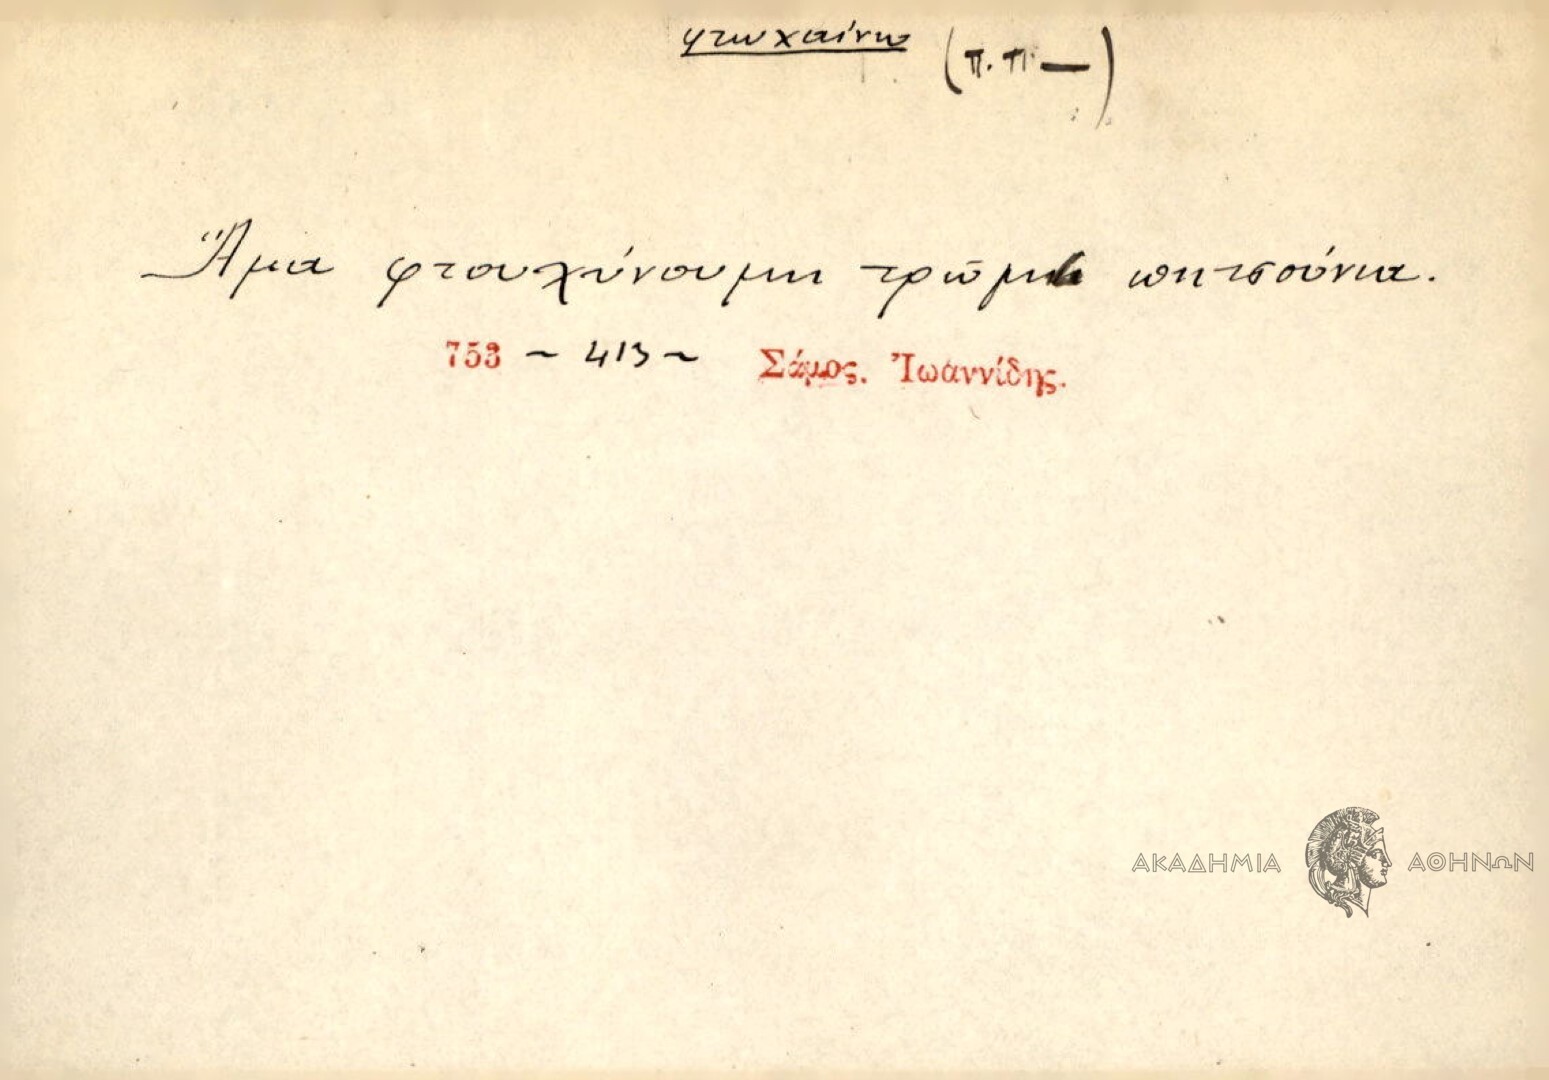 φτωχαίνω (π.π. —)
Ἅμα φτουχύνουμι τρῶμι πιτσούνια.
753 ~ 413 ~ Σάμος. Ἰωαννίδης.
ΑΚΑΔΗΜΙΑ ΑΘΗΝΩΝ